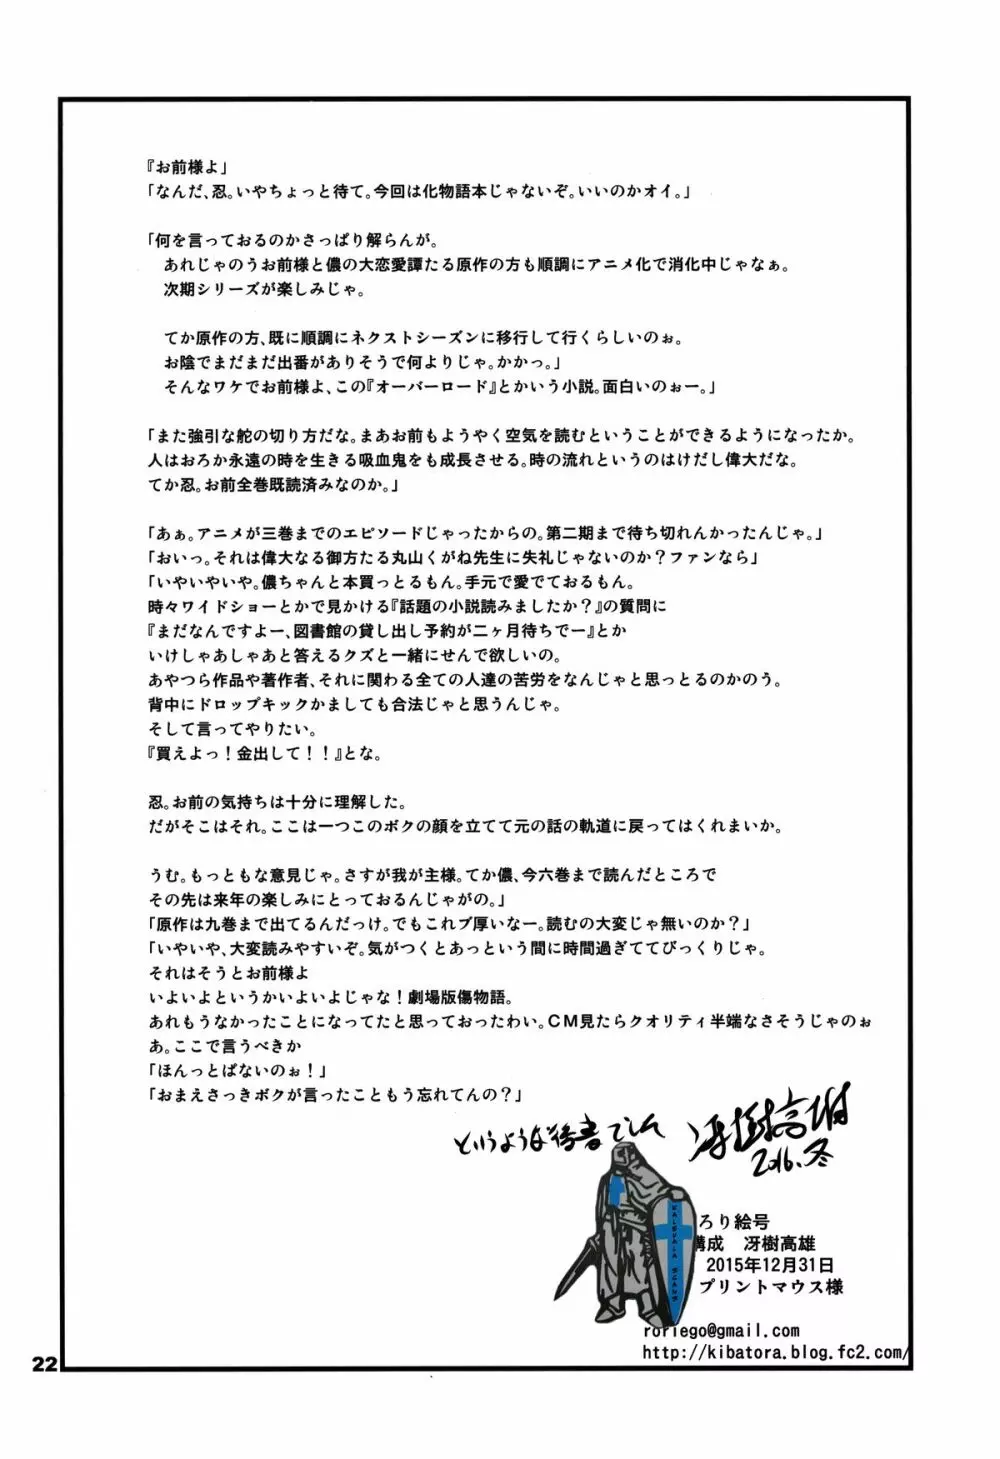 『お前様よ」
「なんだ、忍。いやちょっと待て。今回は化物語本じゃないぞ。いいのかオイ。」
「何を言っておるのかさっぱり解らんが。
あれじゃのうお前様と儂の大恋愛譚たる原作の方も順調にアニメ化で消化中じゃなぁ。
次期シリーズが楽しみじゃ。
てか原作の方、既に順調にネクストシーズンに移行して行くらしいのぉ。
お陰でまだまだ出番がありそうで何よりじゃ。かかっ。」
そんなワケでお前様よ、この『オーバーロード』とかいう小説。面白いのぉー。」
「また強引な舵の切り方だな。まあお前もようやく空気を読むということができるようになったか。
人はおろか永遠の時を生きる吸血鬼をも成長させる。時の流れというのはけだし偉大だな。
てか忍。お前全巻既読済みなのか。」
「あぁ。アニメが三巻までのエピソードじゃったからの。第二期まで待ち切れんかったんじゃ。」
「おいっ。それは偉大なる御方たる丸山くがね先生に失礼じゃないのか？ファンなら」
「いやいやいや。儂ちゃんと本買っとるもん。手元で愛でておるもん。
時々ワイドショーとかで見かける『話題の小説読みましたか？』の質問に
『まだなんですよー、図書館の貸し出し予約が二ヶ月待ちでー』とか
いけしゃあしゃあと答えるクズと一緒にせんで欲しいの。
あやつら作品や著作者、それに関わる全ての人達の苦労をなんじゃと思っとるのかのう。
背中にドロップキックかましても合法じゃと思うんじゃ。
そして言ってやりたい。
『買えよっ！金出して！！』とな。
忍。お前の気持ちは十分に理解した。
だがそこはそれ。ここは一つこのボクの顔を立てて元の話の軌道に戻ってはくれまいか。
うむ。もっともな意見じゃ。さすが我が主様。てか儂、今六巻まで読んだところで
その先は来年の楽しみにとっておるんじゃがの。」
「原作は九巻まで出てるんだっけ。でもこれブ厚いなー。読むの大変じゃ無いのか？」
「いやいや、大変読みやすいぞ。気がつくとあっという間に時間過ぎててびっくりじゃ。
それはそうとお前様よ
いよいよというかいよいよじゃな！劇場版傷物語。
あれもうなかったことになってたと思っておったわい。ＣＭ見たらクオリティ半端なさそうじゃのぉ
あ。ここで言うべきか
「ほんっとぱないのぉ！」
「おまえさっきボクが言ったこともう忘れてんの？」
というような後書でした 冴樹高雄
2016.冬
ろり絵号
構成 冴樹高雄
2015年12月31日
プリントマウス様
roriego@gmail.com
http://kibatora.blog.fc2.com/
22